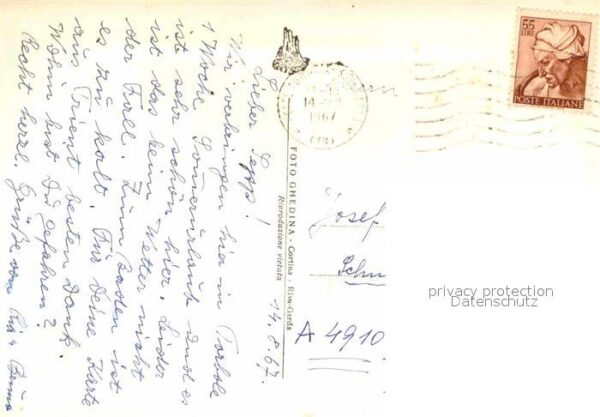 14.8.67.
Lieber Sepp!
Wir verbringen hier in Torbole
1 Woche Sommerurlaub und es
ist sehr schön hier. Leider
ist das beim Wetter nicht
der Fall. Zum Baden ist
es zu kalt. Für Deine Karte
aus Trient besten Dank.
Wohin bist Du gefahren?
Recht herzl. Grüße von
FOTO GHEDINA - Cortina - Riva-Garda
Riproduzione vietata
55
LIRE
POSTE ITALIANE
1967
Herrn
Josef
A 4910
privacy protection
Datenschutz